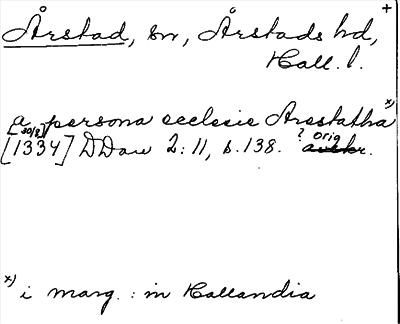 +
Årstad, sn, Årstads hd,
Hall. l.
a persona ecclesie Arestatha x)
[30/8 1334] DDan 2:11, s. 138. ? orig.
x) i marg.: in Hallandia